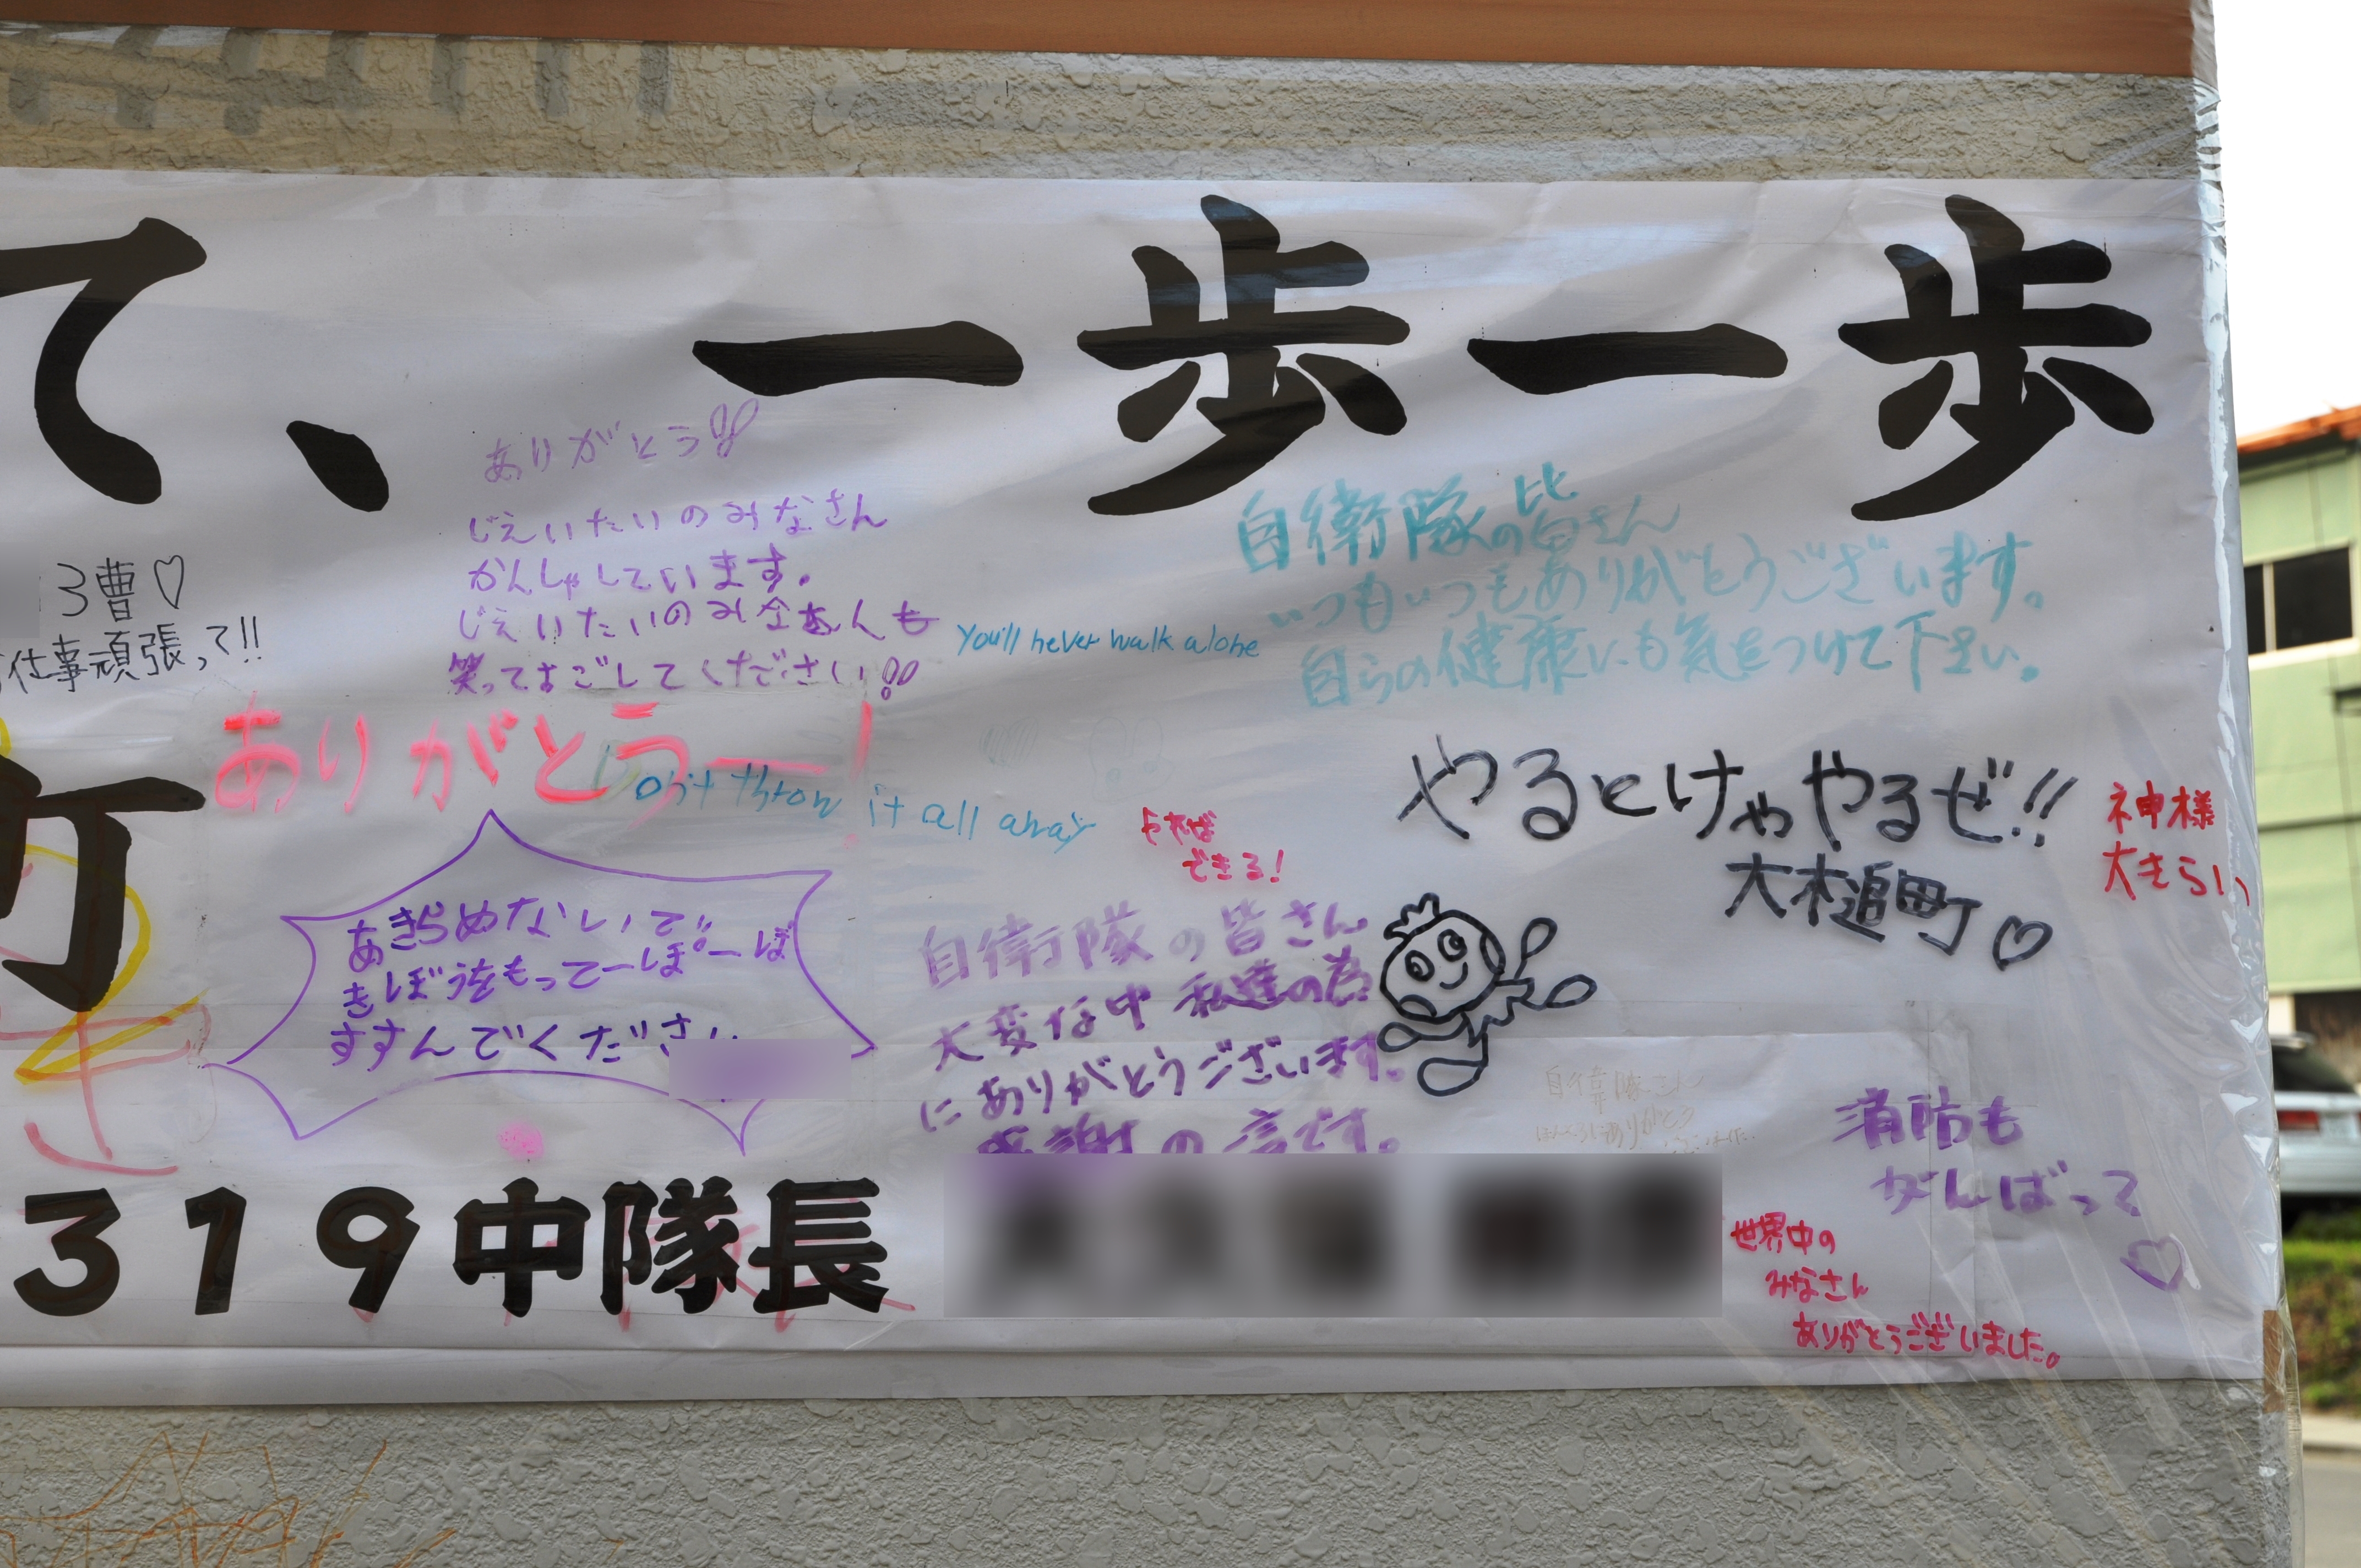 て、一歩一歩
ありがとう!!
じえいたいのみなさん
かんしゃしています。
じえいたいのみなさんも
笑ってすごしてください!!
3曹♡
仕事頑張って!!
You'll never walk alone
自衛隊の皆さん
いつもいつもありがとうございます。
自らの健康にも気をつけて下さい。
ありがとうー!
Don't throw it all away
やれば
できる!
やるときゃやるぜ!!
大槌町♡
神様
大きらい
町
あきらめないで。
きぼうをもって一ぽ一ぽ
すすんでください
自衛隊の皆さん
大変な中私達の為
にありがとうございます。
感謝の言です。
消防も
がんばって
♡
319中隊長
世界中の
みなさん
ありがとうございました。